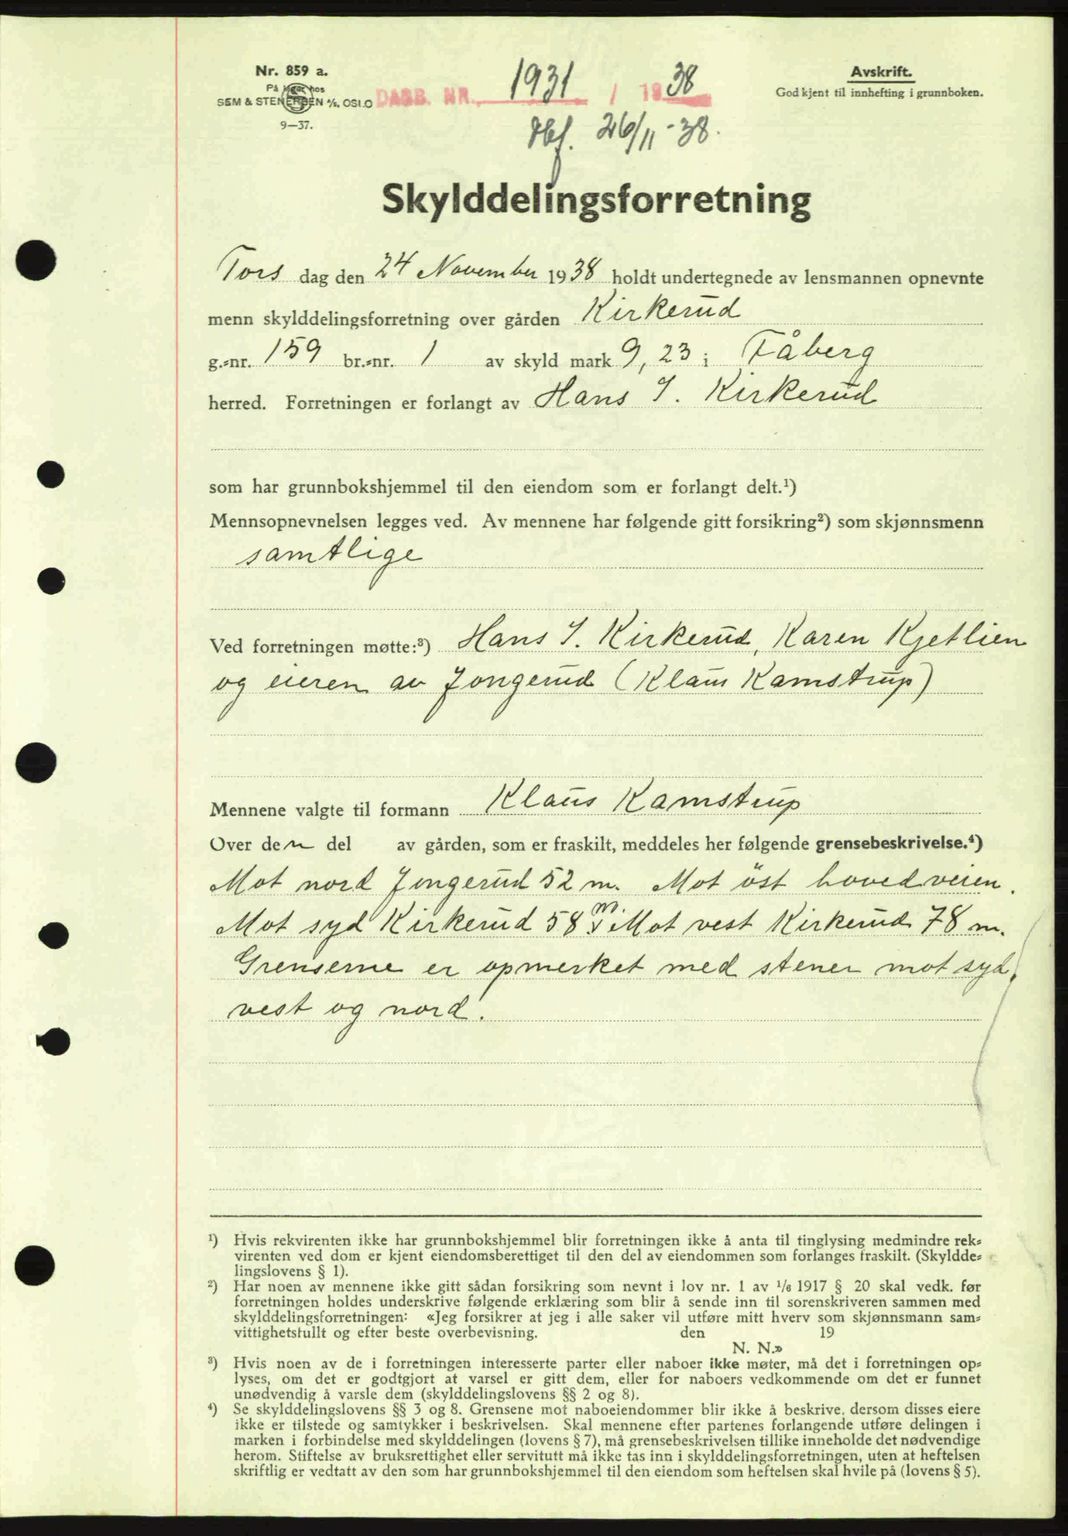 Nr. 859 a.
På lager hos
SEM & STENERSEN A/S, OSLO
9—37.
DAGB. NR. 1931 / 1938
26/11-38.
Avskrift.
Godkjent til innhefting i grunnboken.
Skylddelingsforretning
Tors dag den 24 November 1938 holdt undertegnede av lensmannen opnevnte
menn skylddelingsforretning over gården Kirkerud
g.-nr. 159 br.-nr. 1 av skyld mark 9,23 i Fåberg
herred. Forretningen er forlangt av Hans J. Kirkerud
som har grunnbokshjemmel til den eiendom som er forlangt delt.¹)
Mennsopnevnelsen legges ved. Av mennene har følgende gitt forsikring²) som skjønnsmenn
samtlige
Ved forretningen møtte:³) Hans J. Kirkerud, Karen Kjetlien
og eieren av Jongerud (Klaus Kamstrup)
Mennene valgte til formann Klaus Kamstrup
Over den del av gården, som er fraskilt, meddeles her følgende grensebeskrivelse.⁴)
Mot nord Jongerud 52 m. Mot öst hovedveien.
Mot syd Kirkerud 58 m. Mot vest Kirkerud 78 m.
Grenserne er opmerket med stener mot syd,
vest og nord.
¹) Hvis rekvirenten ikke har grunnbokshjemmel blir forretningen ikke å anta til tinglysing medmindre rek-
virenten ved dom er kjent eiendomsberettiget til den del av eiendommen som forlanges fraskilt. (Skyldde-
lingslovens § 1).
²) Har noen av mennene ikke gitt sådan forsikring som nevnt i lov nr. 1 av 1/6 1917 § 20 skal vedk. før
forretningen holdes underskrive følgende erklæring som blir å sende inn til sorenskriveren sammen med
skylddelingsforretningen: «Jeg forsikrer at jeg i alle saker vil utføre mitt hverv som skjønnsmann sam-
vittighetsfullt og efter beste overbevisning. den 19
N. N.»
³) Hvis noen av de i forretningen interesserte parter eller naboer ikke møter, må det i forretningen op-
lyses, om det er godtgjort at varsel er gitt dem, eller for naboers vedkommende om det er funnet
unødvendig å varsle dem (skylddelingslovens §§ 2 og 8).
⁴) Se skylddelingslovens §§ 3 og 8. Grensene mot naboeiendommer blir ikke å beskrive, dersom disses eiere
ikke er tilstede og samtykker i beskrivelsen. Skal mennene efter partenes forlangende utføre delingen i
marken i forbindelse med skylddelingen (lovens § 7), må grensebeskrivelsen tillike inneholde det nødvendige
herom. Stiftelse av bruksrettighet eller servitutt må ikke tas inn i skylddelingsforretningen, uten at heftelsen
skriftlig er vedtatt av den som har grunnbokshjemmel til den eiendom som heftelsen skal hvile på (lovens § 5).